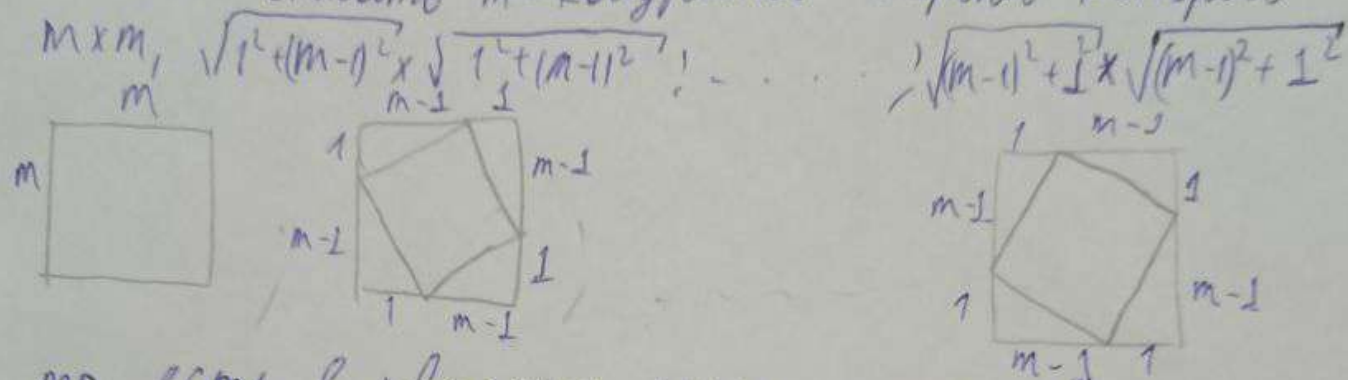 m×m, √1²+(m-1)² × √1²+(m-1)²; . . . . . ; √(m-1)²+1² × √(m-1)²+1²
m m-1 1 1 m-1
m 1 m-1 m-1 1
m-1 1 1 m-1
1 m-1 m-1 1